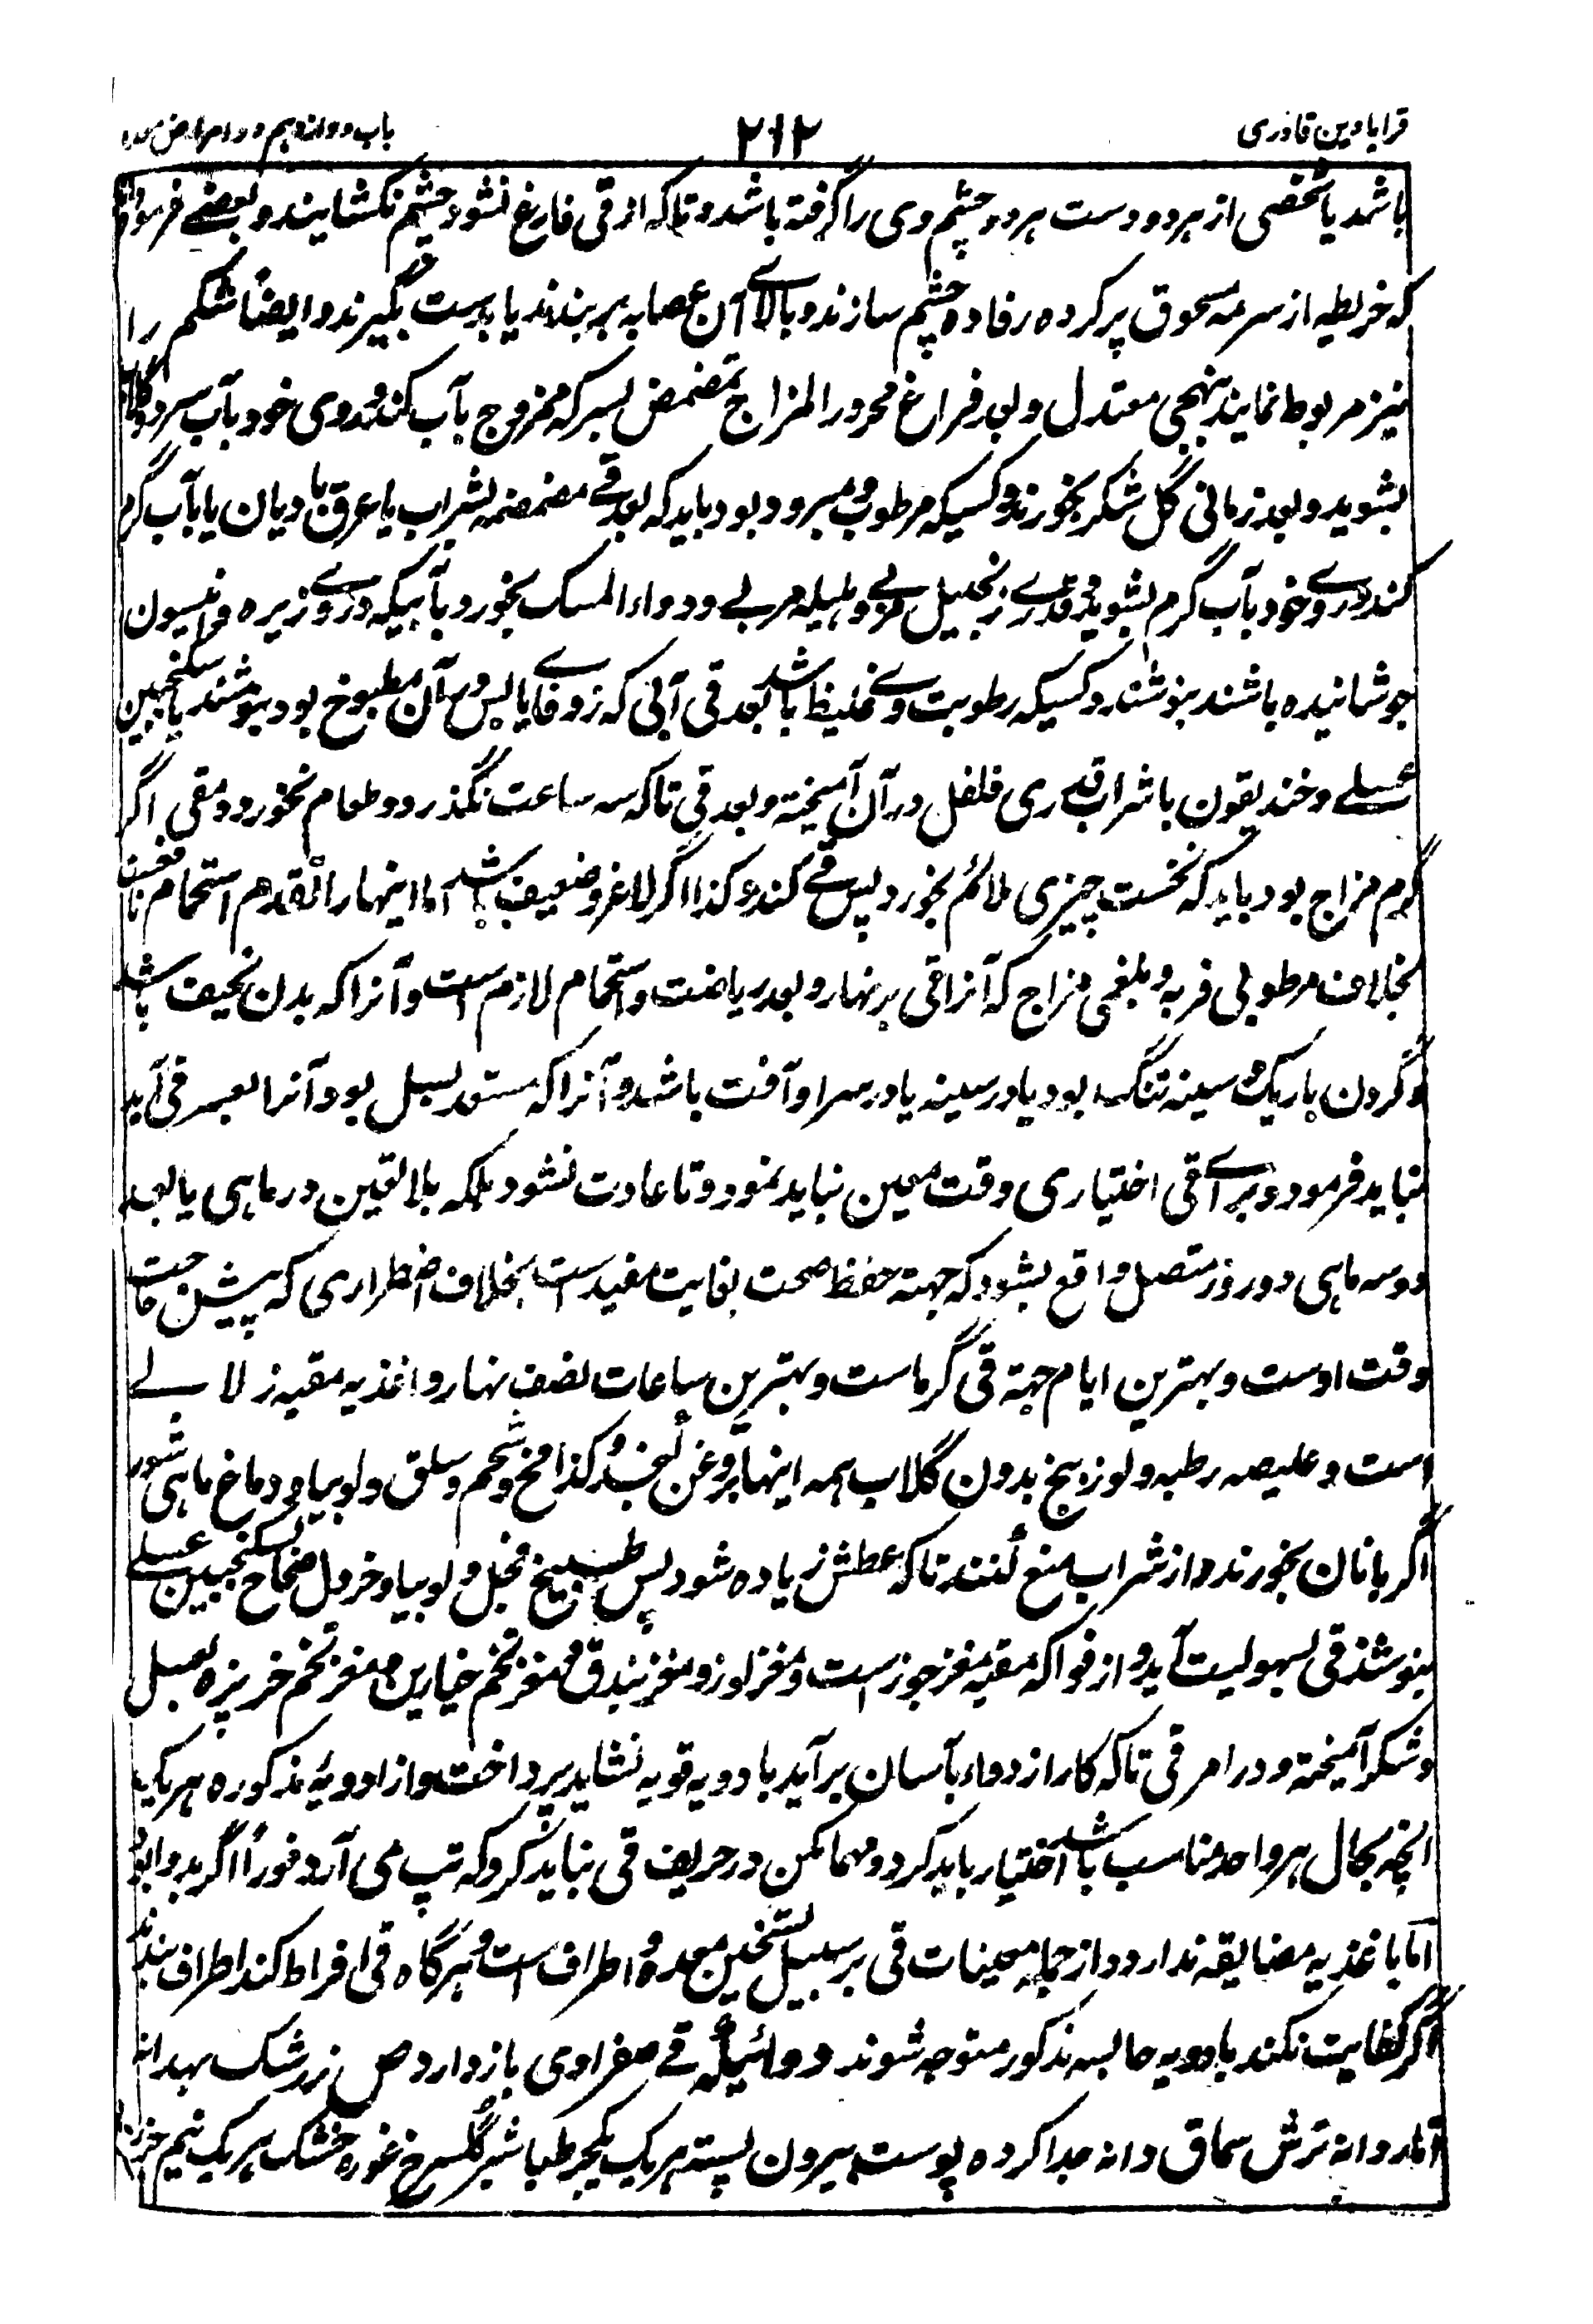 قرابادین قادری
۲۱۲
باب دوازدهم در امراض معده
باشد یا شخصی از هر دو دست هر دو چشم وی را گرفته باشد و تا که از قی فارغ نشود چشم نکشایند و بعضے فرموده
که خریطه از سرمه مسحوق پر کرده رفاده چشم سازند و بالاے آن عصابه بر بندند یا بدست بگیرند و ایضاً شکم را
نیز مربوط نمایند بنهجی معتدل و بعد فراغ محرور المزاج تمضمض بسرکه ممزوج بآب کند و روی خود بآب سرد و گلاب
بشوید و بعد زمانی گل شکر بخورند و کسیکه مرطوب و مبرود بود باید که بعد قے مضمضه بشراب یا عرق بادیان یا بآب گرم
کند و روے خود بآب گرم بشوید و قدرے زنجبیل مربے و هلیله مربے و دواء المسک بخورد یا آبیکه در وے زیره و انیسون
جوشانیده باشند بنوشند و کسیکه رطوبت وے غلیظ باشد بعد قی آبی که زوفاے یابس در آن مطبوخ بود بنوشند یا سکنجبین
عسلے و خندیقون با شراب قدری فلفل در آن آمیخته و بعد قی تا که سه ساعت نگذرد و طعام نخورد و مقی اگر
گرم مزاج بود باید که نخست چیزی ملائم بخورد پس قے کند و کذا اگر لاغر و ضعیف باشد اما اینها را تقدم استحمام نافعست
بخلاف مرطوبی فربه و بلغمی مزاج که آنرا قی بر نهار و بعد ریاضت و استحمام لازم است و آنرا که بدن نحیف باشد
و گردن باریک و سینه تنگ بود یا در سینه یا در سر او آفت باشد و آنرا که مستعد بسل بود و آنرا بعسر قی آید
نباید فرمود و براے قی اختیاری وقت معین نباید نمود و تا عادت نشود بلکه بلا تعین در ماهی یا بعد
دو سه ماهی دو روز متصل واقع بشود که جهته حفظ صحت بغایت مفید است بخلاف اضطراری که پیش حاجت
وقت اوست و بهترین ایام جهته قی گرماست و بهترین ساعات نصف نهار و اغذیه مقیه زلابے
است و علیصه رطبه و لوزینج بدون گلاب همه اینها بروغن کنجد و کذا مخ و شحم و سلق و لوبیا و دماغ ماهی شور
اگر با نان بخورند و از شراب منع کنند تا که عطش زیاده شود پس طبیخ فجل و لوبیا و خردل سکنجبین عسلے
بنوشند قی بسهولیت آید و از فواکه مقیه مغز جوز است و مغز لوز و مغز بندق و مغز تخم خیارین و مغز تخم خربزه بعسل
و شکر آمیخته و در امر قی تا که کار از دواء بآسان بر آید بادویه قویه نشاید پرداخت و از ادویهٔ مذکوره هر یک
آنچه بحال هر واحد مناسب باشد اختیار باید کرد و مهما امکن در خریف قی نباید کرد که تپ می آرد فوراً اگر بدوا بود
اما باغذیه مضایقه ندارد و از جمله معینات قی بر سبیل تسخین معده و اطراف است و هرگاه قی افراط کند اطراف بندند
اگر کفایت نکند بادویه حابسه مذکور متوجه شوند دوائیکه قے صفراوی باز دارد ص زرشک بهدانه
انار دانه ترش سماق دانه جدا کرده پوست بیرون پسته هر یک یکجز طباشیر گلسرخ غوره خشک هر یک نیم جز